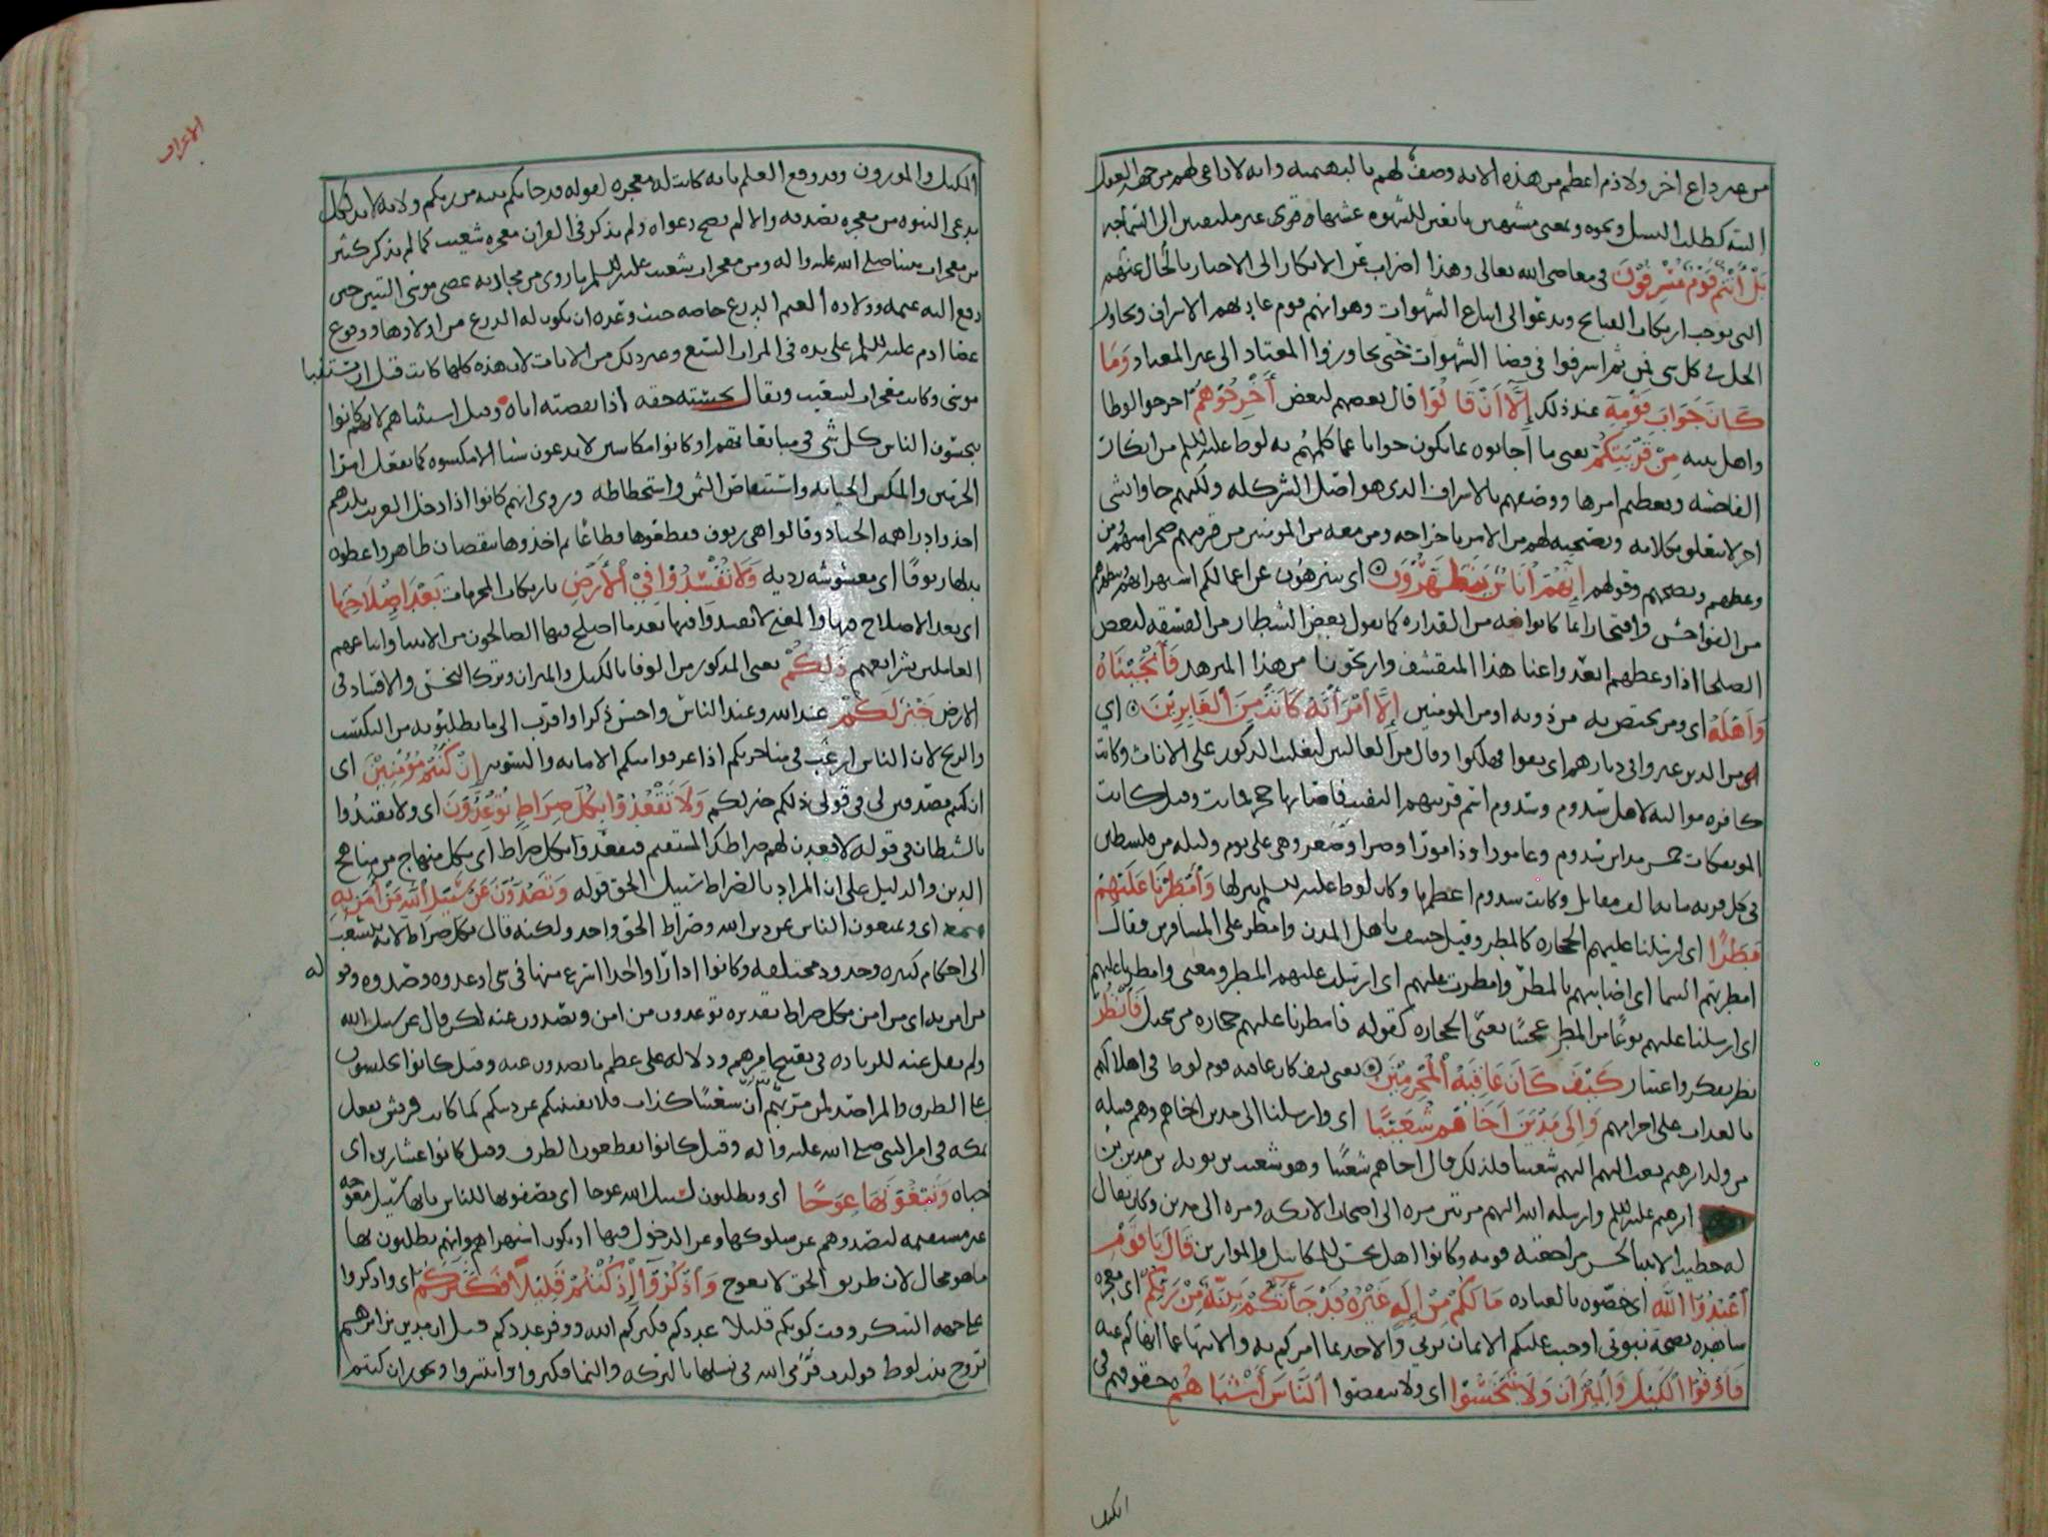 من غير داع اخر ولا ذم اعظم من هذه لانه وصف لهم بالبهيمية وانه لا داعي لهم من جهة العقل
البتة كطلب النسل ونحوه وبمعنى مشتهين تابعين للشهوة غير ملتفتين الى السماجة
بَلْ أَنْتُمْ قَوْمٌ مُسْرِفُونَ في معاصي الله تعالى وهذا اضراب عن الانكار الى الاخبار بالحال عنهم
التي توجب ارتكاب القبائح وتدعوا الى اتباع الشهوات وهو انهم قوم عادتهم الاسراف وتجاوز
الحد في كل شي فمن ثم اسرفوا في قضا الشهوات حتى تجاوزوا المعتاد الى غير المعتاد وَمَا
كَانَ جَوَابَ قَوْمِهِ عند ذلك إِلَّا أَنْ قَالُوا قال بعضهم لبعض أَخْرِجُوهُمْ اخرجوا لوطا
واهل بيته مِنْ قَرْيَتِكُمْ يعني ما اجابوه بما يكون جوابا عما كلمهم به لوط عليه السلم من انكار
الفاحشة وتعظيم امرها ووصفهم بالاسراف الذي هو اصل الشر كله ولكنهم جاوا بشي
اخر لا يتعلق بكلامه ونصيحته لهم من الامر باخراجه ومن معه من المومنين من قريتهم ضجرا منهم ومن
وعظهم ونصحهم وقولهم إِنَّهُمْ أُنَاسٌ يَتَطَهَّرُونَ اي يتنزهون عن اعمالكم استهزا بهم وبتطهرهم
من الفواحش وافتخارا بما كانوا فيه من القذارة كما يقول بعض الشطار من الفسقة لبعض
الصلحا اذا وعظهم ابعدوا عنا هذا المتقشف واريحونا من هذا المتزهد فَأَنْجَيْنَاهُ
وَأَهْلَهُ اي ومن يختص به من ذويه او من المومنين إِلَّا امْرَأَتَهُ كَانَتْ مِنَ الْغَابِرِينَ اي
من الذين غبروا في ديارهم اي بقوا فهلكوا وقال من الغابرين لتغليب الذكور على الاناث وكانت
كافرة موالية لاهل سدوم وسدوم اسم قريتهم التفتت فاصابها حجر فماتت وقيل كانت
الموتفكات خمس مداين سدوم وعامورا وذاموزا وصرا وصعر وهي على يوم وليلة من فلسطين
في كل قرية مائة الف مقاتل وكانت سدوم اعظمها وكان لوط عليه السلم ينزلها وَأَمْطَرْنَا عَلَيْهِمْ
مَطَرًا اي ارسلنا عليهم الحجارة كالمطر وقيل خسف باهل المدن وامطر على المسافرين فقال
امطرتهم السما اي اصابتهم بالمطر وامطرت عليهم اي ارسلت عليهم المطر ومعنى وامطرنا عليهم
اي ارسلنا عليهم نوعا من المطر عجيبا يعني الحجارة كقوله فامطرنا عليهم حجارة من سجيل فَانْظُرْ
نظر تفكر واعتبار كَيْفَ كَانَ عَاقِبَةُ الْمُجْرِمِينَ يعني كيف كان عاقبة قوم لوط في اهلاكهم
بالعذاب على اجرامهم وَإِلَى مَدْيَنَ أَخَاهُمْ شُعَيْبًا اي وارسلنا الى مدين اخاهم وهم قبيلة
من ولد ابرهيم بعث اليهم شعيبا فلذلك قال اخاهم شعيبا وهو شعيب بن نويه بن مدين بن
ابرهيم عليه السلم وارسله الله اليهم مرتين مرة الى اصحاب الايكة ومرة الى مدين وكان يقال
له خطيب الانبيا لحسن مراجعته قومه وكانوا اهل بخس للمكاييل والموازين قَالَ يَا قَوْمِ
اعْبُدُوا اللَّهَ اي خصوه بالعبادة مَا لَكُمْ مِنْ إِلَهٍ غَيْرُهُ قَدْ جَاءَتْكُمْ بَيِّنَةٌ مِنْ رَبِّكُمْ اي معجزة
شاهدة بصحة نبوتي اوجبت عليكم الايمان بربي والاخذ بما امركم به والانتها عما انهاكم عنه
فَأَوْفُوا الْكَيْلَ وَالْمِيزَانَ وَلَا تَبْخَسُوا اي ولا تنقصوا النَّاسَ أَشْيَاءَهُمْ حقوقهم في
الكيل
الاعراف
الكيل والموزون وقد وقع العلم بانه كانت له معجزة لقوله قد جاتكم بينة من ربكم ولانه لا بد لكل
مدعي النبوة من معجزة تصدقه والا لم تصح دعواه ولم يذكر في القران معجزة شعيب كما لم يذكر كثير
من معجزات نبينا صلى الله عليه واله ومن معجزات شعيب عليه السلم ما روي من محاربة عصى موسى التنين حين
دفع اليه غنمه وولادة الغنم الدرع خاصة حيث وعده ان يكون له الدرع من اولادها ووقوع
عصا ادم عليه السلم على يده في المرات السبع وغير ذلك من الايات لان هذه كلها كانت قبل ان يستنبا
موسى وكانت معجزات لشعيب ويقال بخسته حقه اذا نقصته اياه وقيل اشياهم لانهم كانوا
يبخسون الناس كل شي في مبايعاتهم او كانوا مكاسين لا يدعون شيا الا مكسوه كما يفعل امرا
الحرمين والمكس الجباية واستنقاص الثمن واستحطاطه وروي انهم كانوا اذا دخل الغريب بلدهم
اخذوا دراهمه الجياد وقالوا هي زيوف فقطعوها قطاعا ثم اخذوها بنقصان ظاهر واعطوه
بدلها زيوفا اي مغشوشة ردية وَلَا تُفْسِدُوا فِي الْأَرْضِ بارتكاب المحرمات بَعْدَ إِصْلَاحِهَا
اي بعد الاصلاح فيها والمعنى لا تفسدوا فيها بعد ما اصلح فيها الصالحون من الانبيا واتباعهم
العاملين بشرايعهم ذَلِكُمْ يعني المذكور من الوفا بالكيل والميزان وترك البخس والافساد في
الارض خَيْرٌ لَكُمْ عند الله وعند الناس واحسن ذكرا واقرب الى ما تطلبونه من التكسب
والربح لان الناس ارغب في متاجرتكم اذا عرفوا منكم الامانة والتسوية إِنْ كُنْتُمْ مُؤْمِنِينَ اي
ان كنتم مصدقين لي في قولي ذلكم خير لكم وَلَا تَقْعُدُوا بِكُلِّ صِرَاطٍ تُوعِدُونَ اي ولا تقتدوا
بالشيطان في قوله لاقعدن لهم صراطك المستقيم فتقعدوا بكل صراط اي بكل منهاج من مناهج
الدين والدليل على ان المراد بالصراط سبيل الحق قوله وَتَصُدُّونَ عَنْ سَبِيلِ اللَّهِ مَنْ آمَنَ بِهِ
اي وتمنعون الناس عن دين الله وصراط الحق واحد ولكنه قال بكل صراط لانه يتشعب
الى احكام كثيرة وحدود مختلفة وكانوا اذا راوا احدا شرع منها في شي اوعدوه وصدوه وقو
له
من امن به اي من امن بكل صراط تقديره توعدون من امن وتصدون عنه لكن قال عن سبيل الله
ولم يقل عنه للزيادة في تقبيح امرهم ودلالة على عظم ما يصدون عنه وقيل كانوا يجلسون
على الطرق والمراصد لمن مر بهم ان شعيبا كذاب فلا يفتننكم عن دينكم كما كانت قريش تفعل
بمكة في امر النبي صلى الله عليه واله وقيل كانوا يقطعون الطرق وقيل كانوا عشارين اي
جباه وَتَبْغُونَهَا عِوَجًا اي وتطلبون لسبيل الله عوجا اي تصفونها للناس بانها سبيل معوجة
غير مستقيمة لتصدوهم عن سلوكها وعن الدخول فيها او يكون استهزا بهم وانهم يطلبون بها
ما هو محال لان طريق الحق لا تعوج وَاذْكُرُوا إِذْ كُنْتُمْ قَلِيلًا فَكَثَّرَكُمْ اي واذكروا
على جهة الشكر وقت كونكم قليلا عددكم فكثركم الله ووفر عددكم قيل ان مدين بن ابرهيم
تزوج بنت لوط فولدت فرمى الله في نسلها بالبركة والنما فكثروا وانتشروا ويجوز ان كنتم